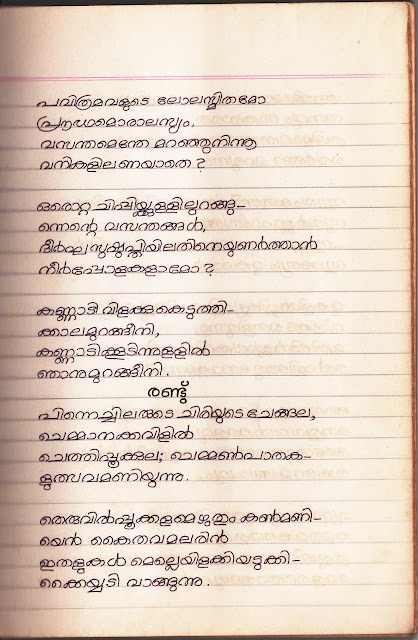 പവിത്രമവളുടെ ലോലസ്മിതമോ
പ്രൗഢമൊരാലസ്യം.
വസന്തമെന്തേ മറഞ്ഞുനിന്നൂ
വനികളിലണയാതെ ?
ഒരൊറ്റ ചിപ്പിയ്ക്കുള്ളിലുറങ്ങു–
ന്നെന്റെ വസന്തങ്ങൾ,
ദീർഘസുഷുപ്തിയിലതിനെയുണർത്താൻ
നീർപ്പോളകളാമോ ?
കണ്ണാടി വിളക്കുകെടുത്തി–
ക്കാലമുറങ്ങീനി,
കണ്ണാടിക്കൂടിന്നുള്ളിൽ
ഞാനുമുറങ്ങീനി.
രണ്ട്
പിന്നെച്ചിലരുടെ ചിരിയുടെ ചേങ്ങല,
ചെമ്മാനക്കവിളിൽ
ചെത്തിപ്പൂക്കുല; ചെമ്മൺപാതക–
ളുത്സവമണിയുന്നു.
തെരുവിൽപ്പൂക്കളമെഴുതും കൺമണി–
യെൻ കൈതവമലരിൻ
ഇതളുകൾ മെല്ലെയിളക്കിയടുക്കി–
ക്കൈയ്യടി വാങ്ങുന്നു.